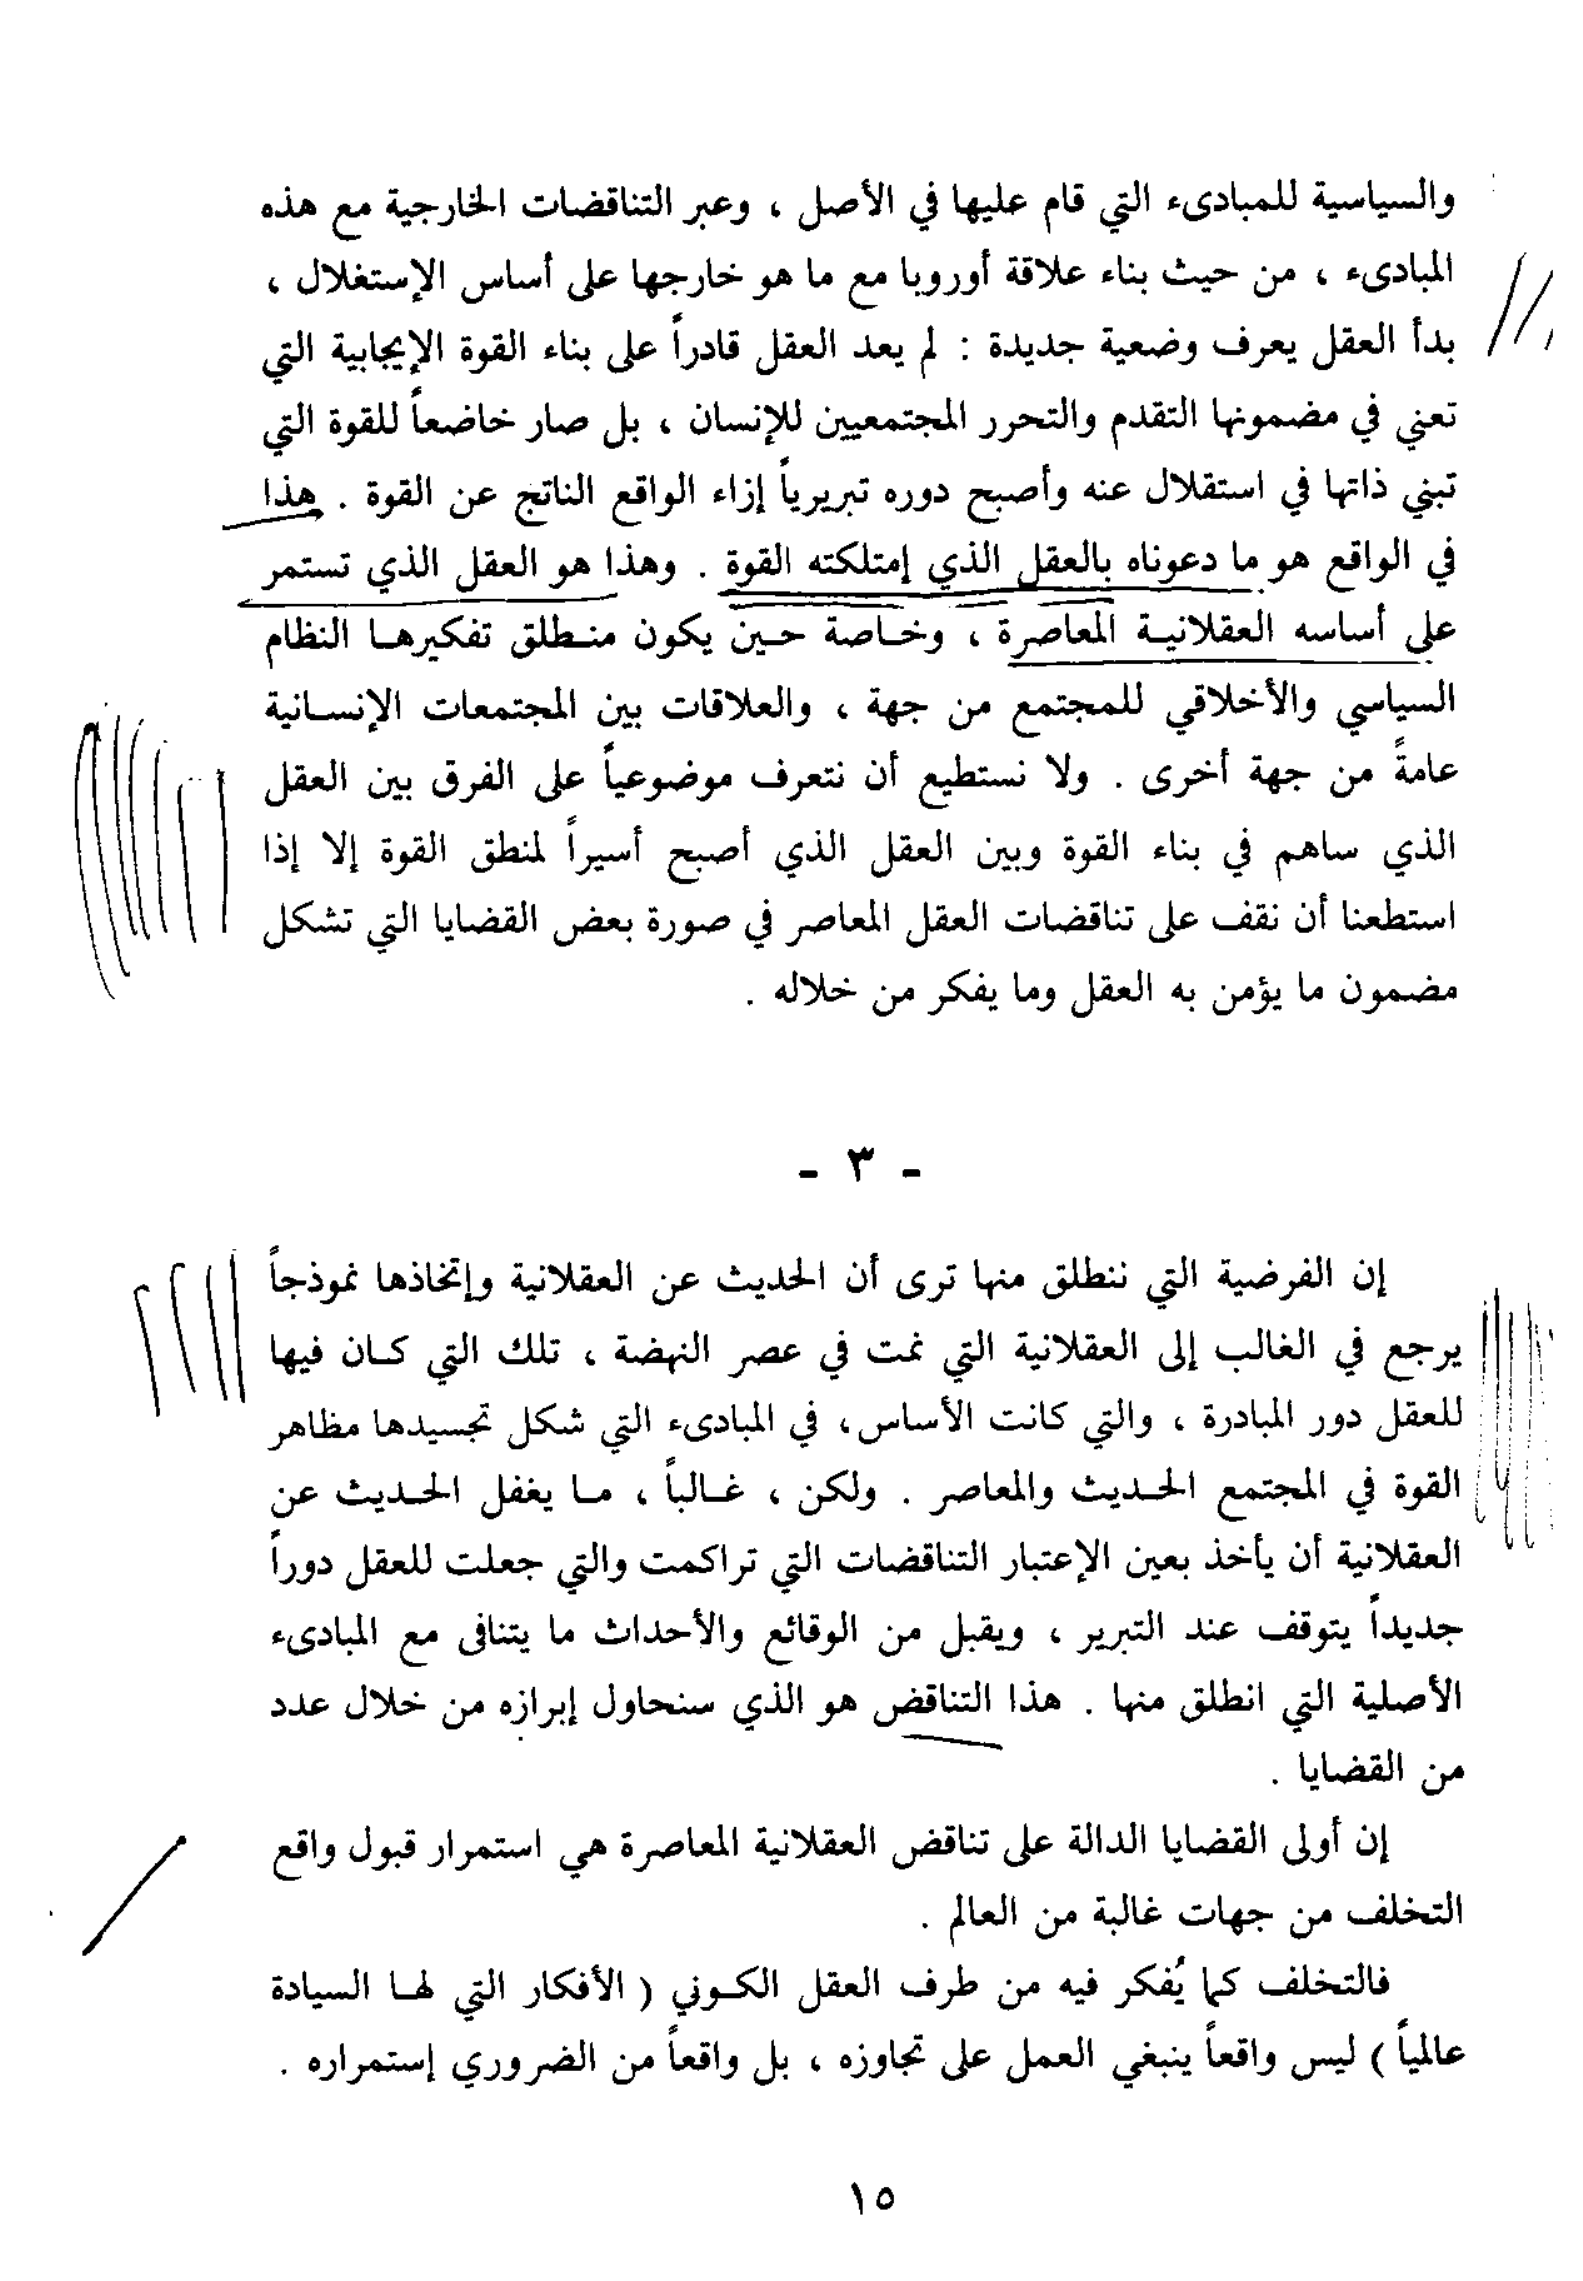 والسياسية للمبادىء التي قام عليها في الأصل ، وعبر التناقضات الخارجية مع هذه
المبادىء ، من حيث بناء علاقة أوروبا مع ما هو خارجها على أساس الإستغلال ،
بدأ العقل يعرف وضعية جديدة : لم يعد العقل قادراً على بناء القوة الإيجابية التي
تعني في مضمونها التقدم والتحرر المجتمعيين للإنسان ، بل صار خاضعاً للقوة التي
تبني ذاتها في استقلال عنه وأصبح دوره تبريرياً إزاء الواقع الناتج عن القوة . هذا
في الواقع هو ما دعوناه بالعقل الذي إمتلكته القوة . وهذا هو العقل الذي تستمر
على أساسه العقلانيـة المعاصرة ، وخـاصة حـين يكون منـطلق تفكيرهـا النظام
السياسي والأخلاقي للمجتمع من جهة ، والعلاقات بين المجتمعات الإنسـانية
عامةً من جهة أخرى . ولا نستطيع أن نتعرف موضوعياً على الفرق بين العقل
الذي ساهم في بناء القوة وبين العقل الذي أصبح أسيراً لمنطق القوة إلا إذا
استطعنا أن نقف على تناقضات العقل المعاصر في صورة بعض القضايا التي تشكل
مضمون ما يؤمن به العقل وما يفكر من خلاله .
- ٣ -
إن الفرضية التي ننطلق منها ترى أن الحديث عن العقلانية وإتخاذها نموذجاً
يرجع في الغالب إلى العقلانية التي نمت في عصر النهضة ، تلك التي كـان فيها
للعقل دور المبادرة ، والتي كانت الأساس، في المبادىء التي شكل تجسيدها مظاهر
القوة في المجتمع الحـديث والمعاصر . ولكن ، غـالباً ، مـا يغفل الحـديث عن
العقلانية أن يأخذ بعين الإعتبار التناقضات التي تراكمت والتي جعلت للعقل دوراً
جديداً يتوقف عند التبرير ، ويقبل من الوقائع والأحداث ما يتنافى مع المبادىء
الأصلية التي انطلق منها . هذا التناقض هو الذي سنحاول إبرازه من خلال عدد
من القضايا .
إن أولى القضايا الدالة على تناقض العقلانية المعاصرة هي استمرار قبول واقع
التخلف من جهات غالبة من العالم .
فالتخلف كما يُفكر فيه من طرف العقل الكـوني ( الأفكار التي لهـا السيادة
عالمياً ) ليس واقعاً ينبغي العمل على تجاوزه ، بل واقعاً من الضروري إستمراره .
١٥